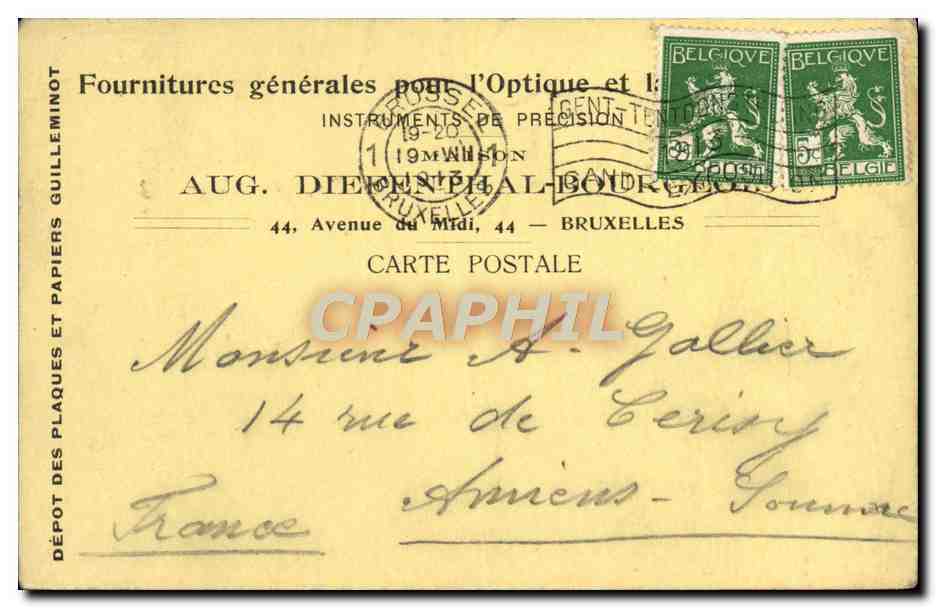 DÉPOT DES PLAQUES ET PAPIERS GUILLEMINOT
Fournitures générales pour l'Optique et la
INSTRUMENTS DE PRÉCISION
MAISON
AUG. DIEFENTHAL-BOURGEOIS
44, Avenue du Midi, 44 — BRUXELLES
CARTE POSTALE
BELGIQUE
5c
BELGIQUE
5c
BELGIE
BRUSSEL
19-20
1 19 VIII 1
1913
BRUXELLES
GENT-TENTOONST
1913
GAND
CPAPHIL
Monsieur A. Gallier
14 rue de Cerisy
Amiens - Somme
France